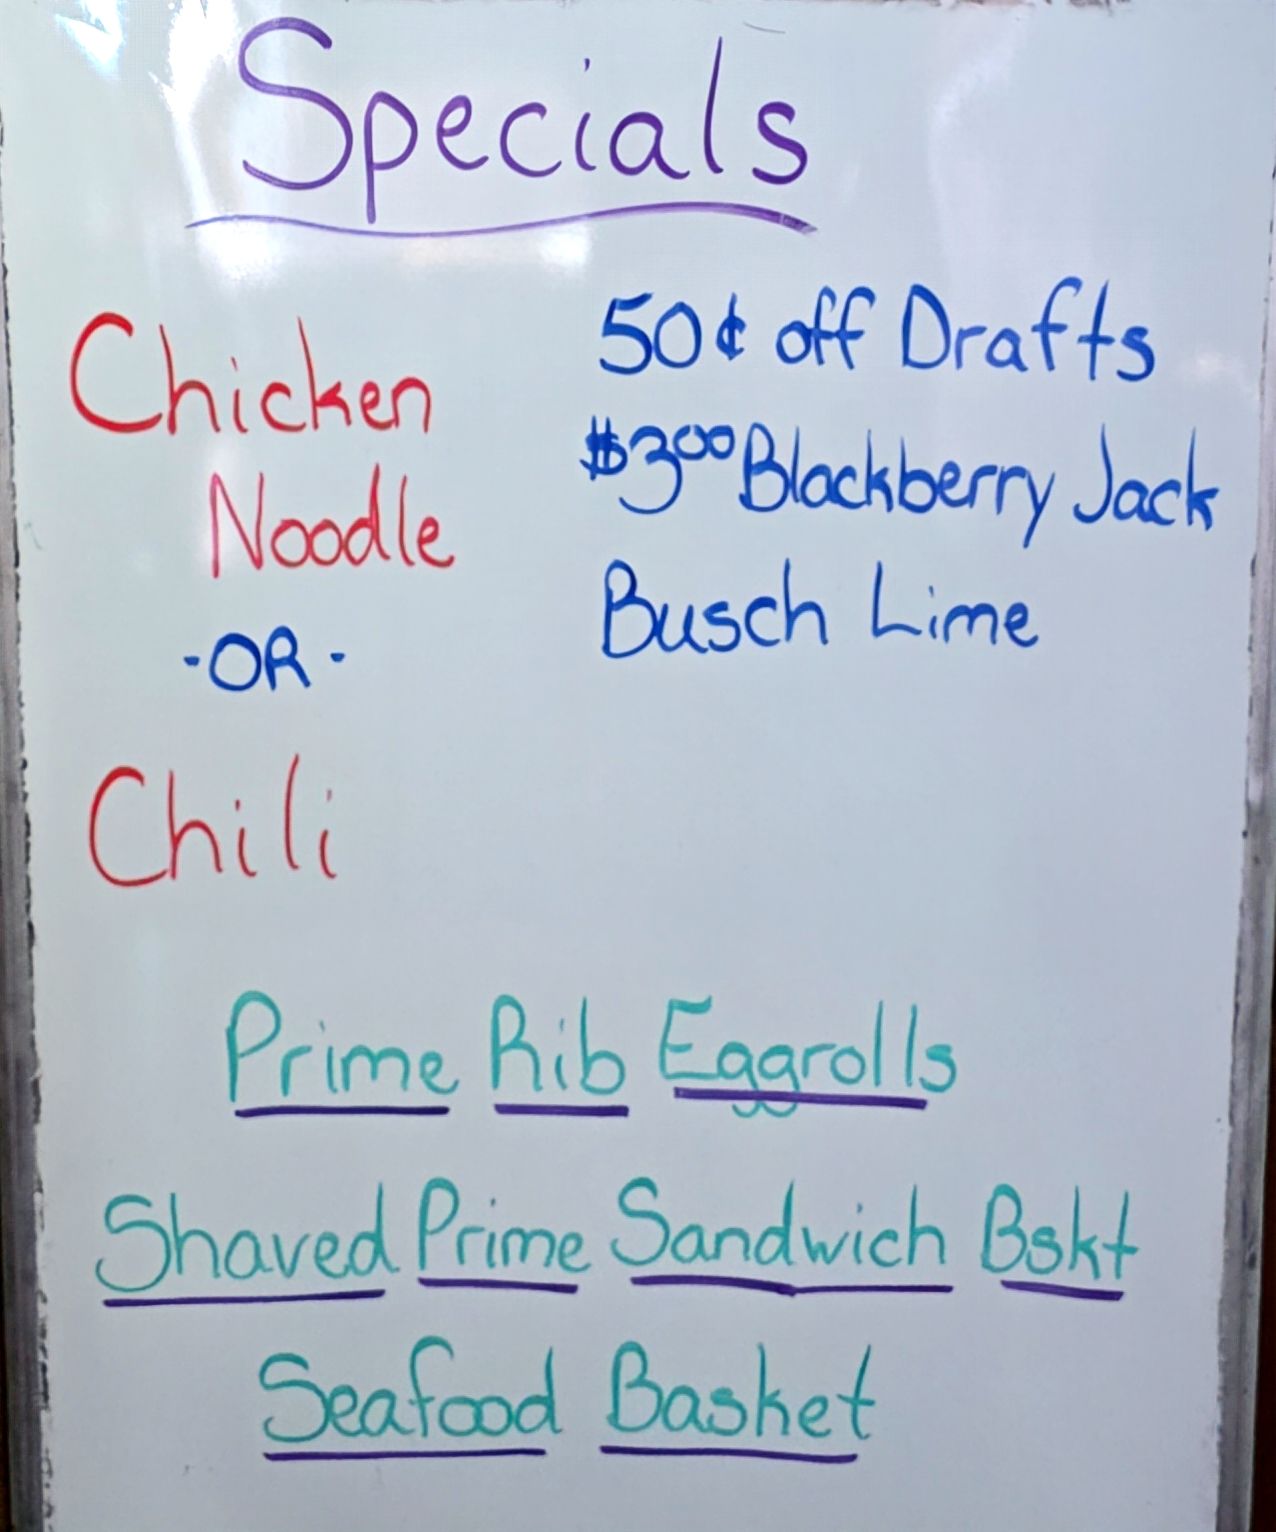 Specials
Chicken
Noodle
-OR-
Chili
50¢ off Drafts
$3.00 Blackberry Jack
Busch Lime
Prime Rib Eggrolls
Shaved Prime Sandwich Bskt
Seafood Basket